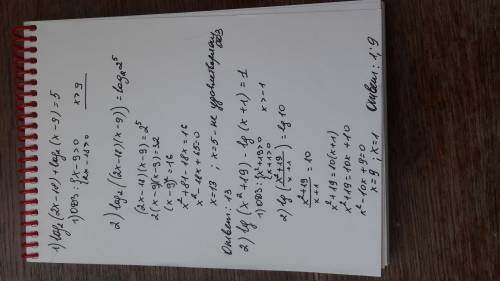 1) log₂(2x-18)+log₂(x-9)=5
1) ОДЗ: {x-9>0
{2x-18>0
x>9
2) log₂((2x-18)(x-9))=log₂2⁵
(2x-18)(x-9)=2⁵
2(x-9)(x-9)=32
(x-9)²=16
x²+81-18x=16
x²-18x+65=0
x=13; x=5 - не удовлетворяет ОДЗ
Ответ: 13
2) lg(x²+19)-lg(x+1)=1
1) ОДЗ: {x²+19>0
{x+1>0
x>-1
2) lg(x²+19/x+1)=lg10
x²+19/x+1=10
x²+19=10(x+1)
x²+19=10x+10
x²-10x+9=0
x=9; x=1
Ответ: 1; 9